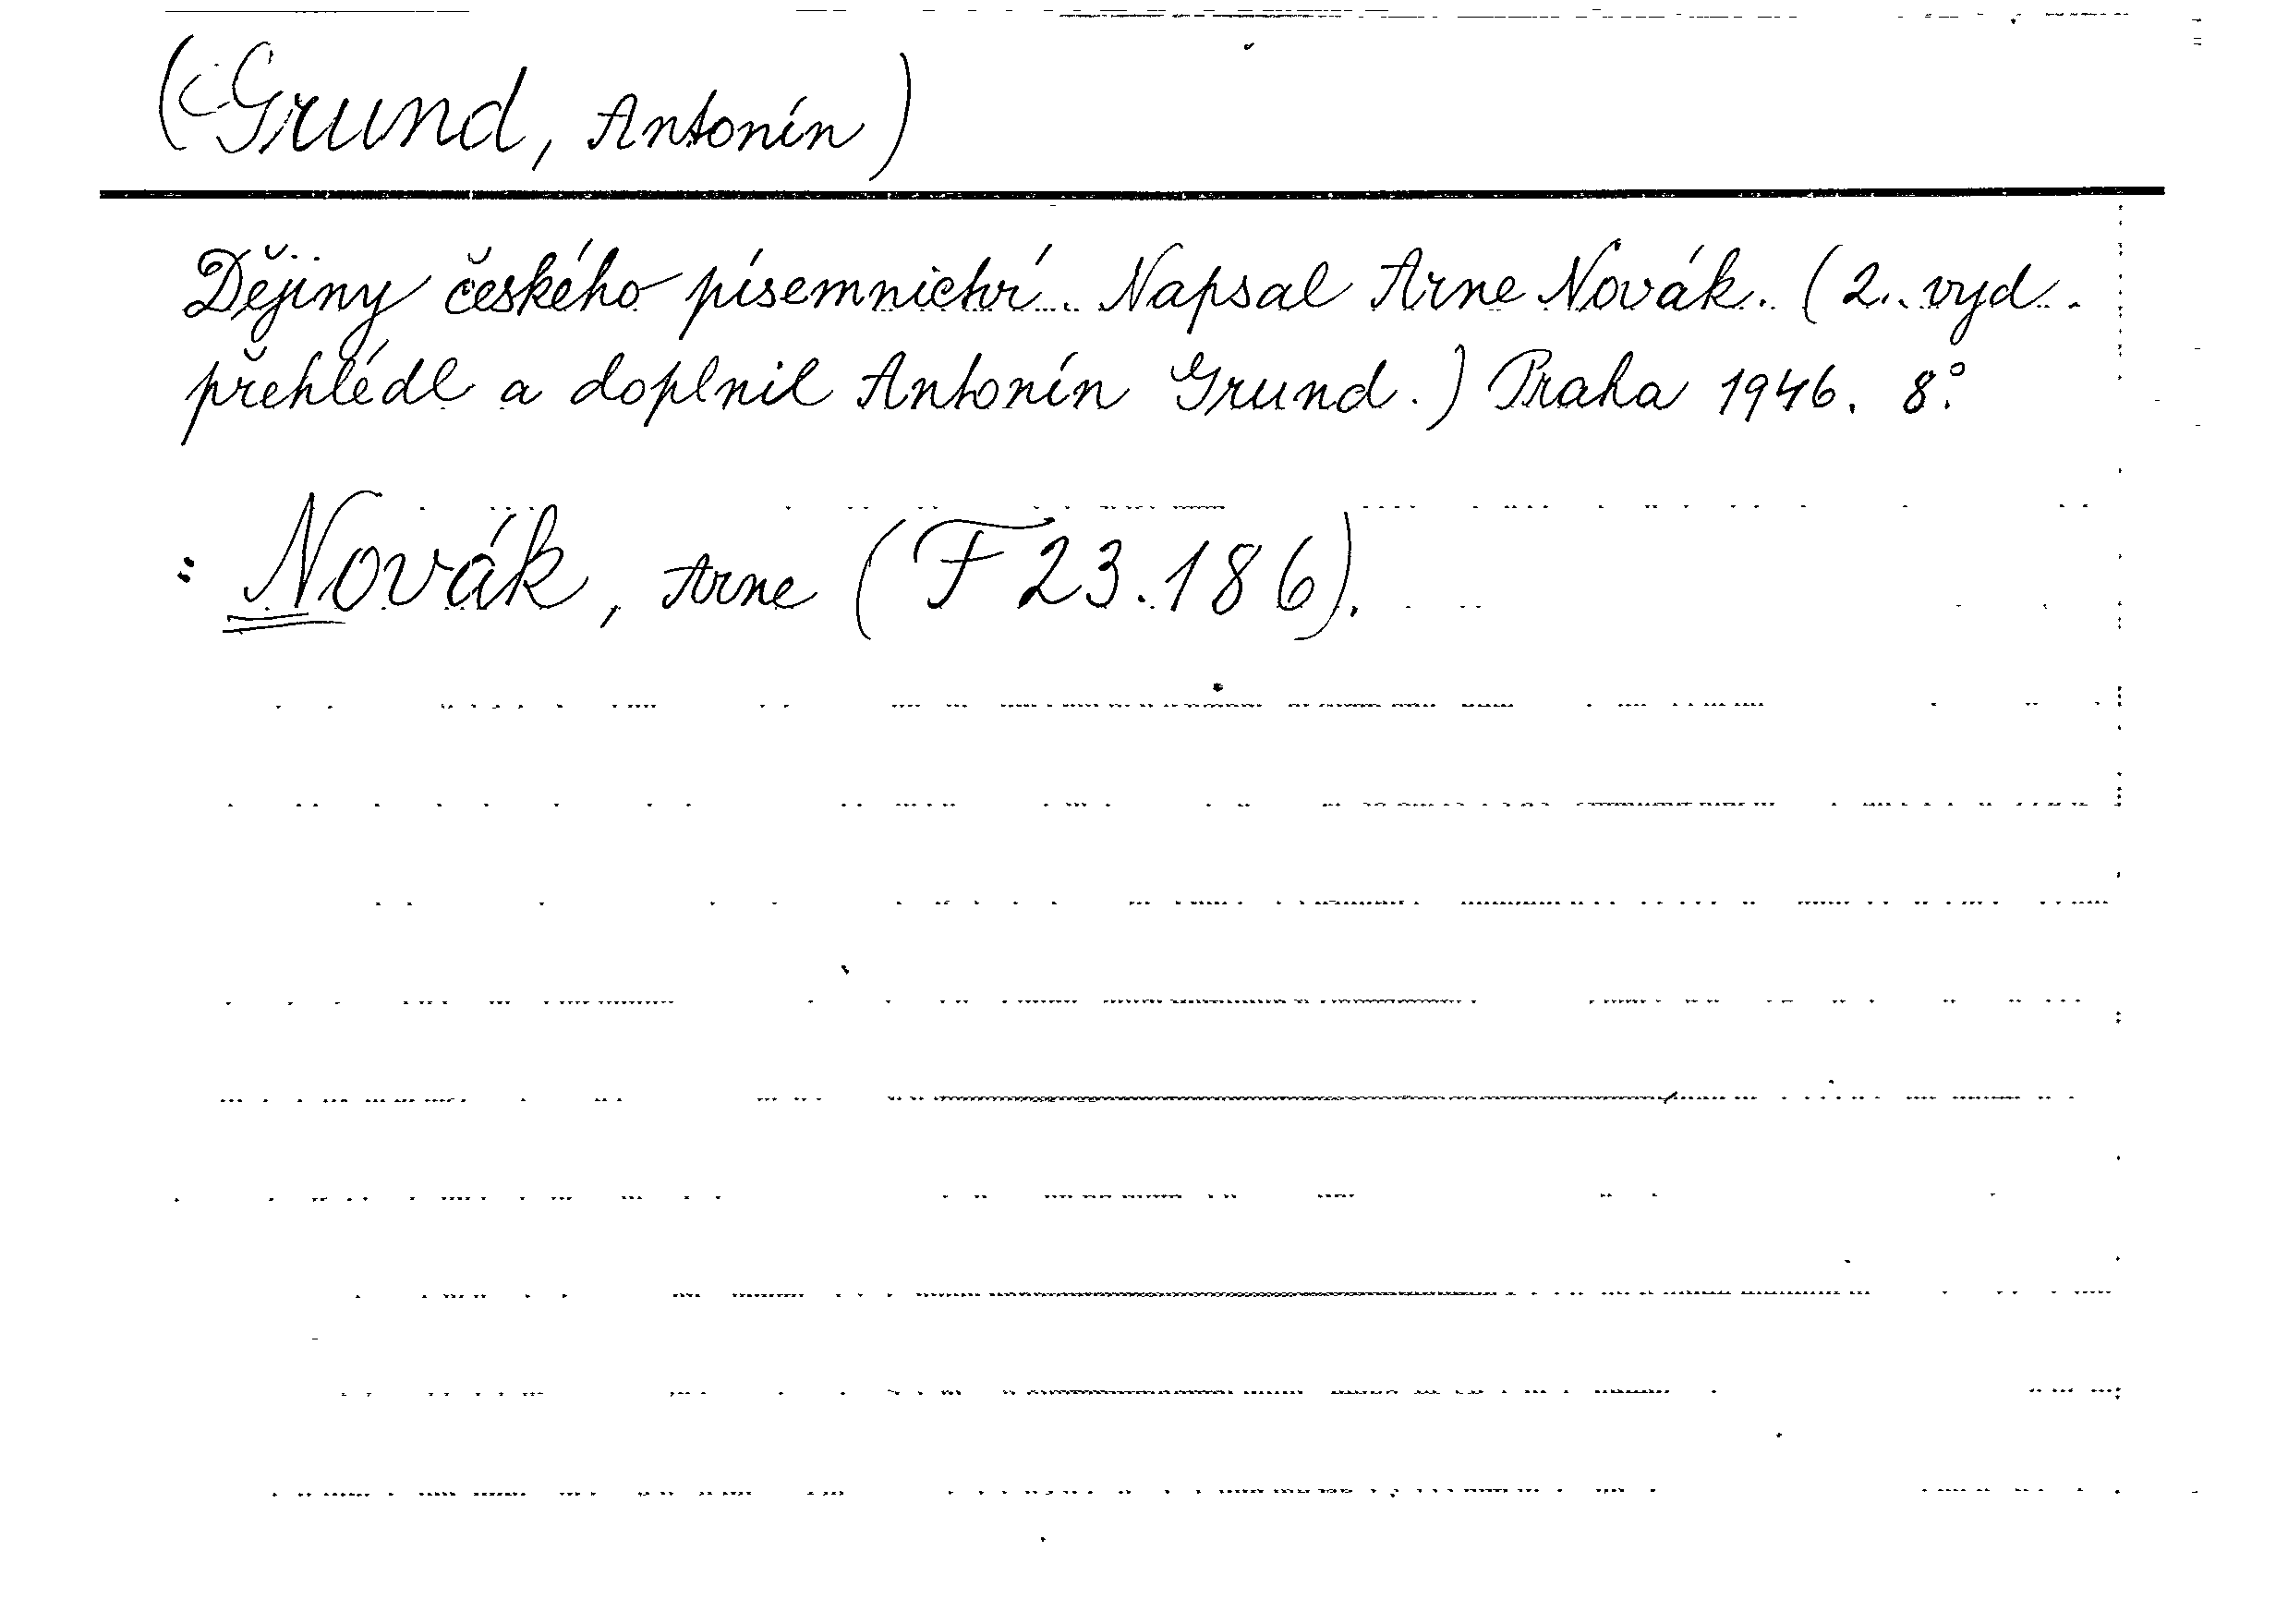 (Grund, Antonín)
Dějiny českého písemnictví. Napsal Arne Novák. (2. vyd.
přehlédl a doplnil Antonín Grund.) Praha 1946. 8°.
: Novák, Arne (F 23.186).